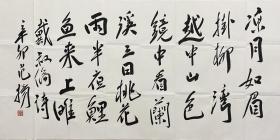 凉月如眉
掛柳灣
越中山色
鏡中看蘭
溪三日桃花
雨半夜鯉
魚来上滩
戴叔倫詩
辛卯